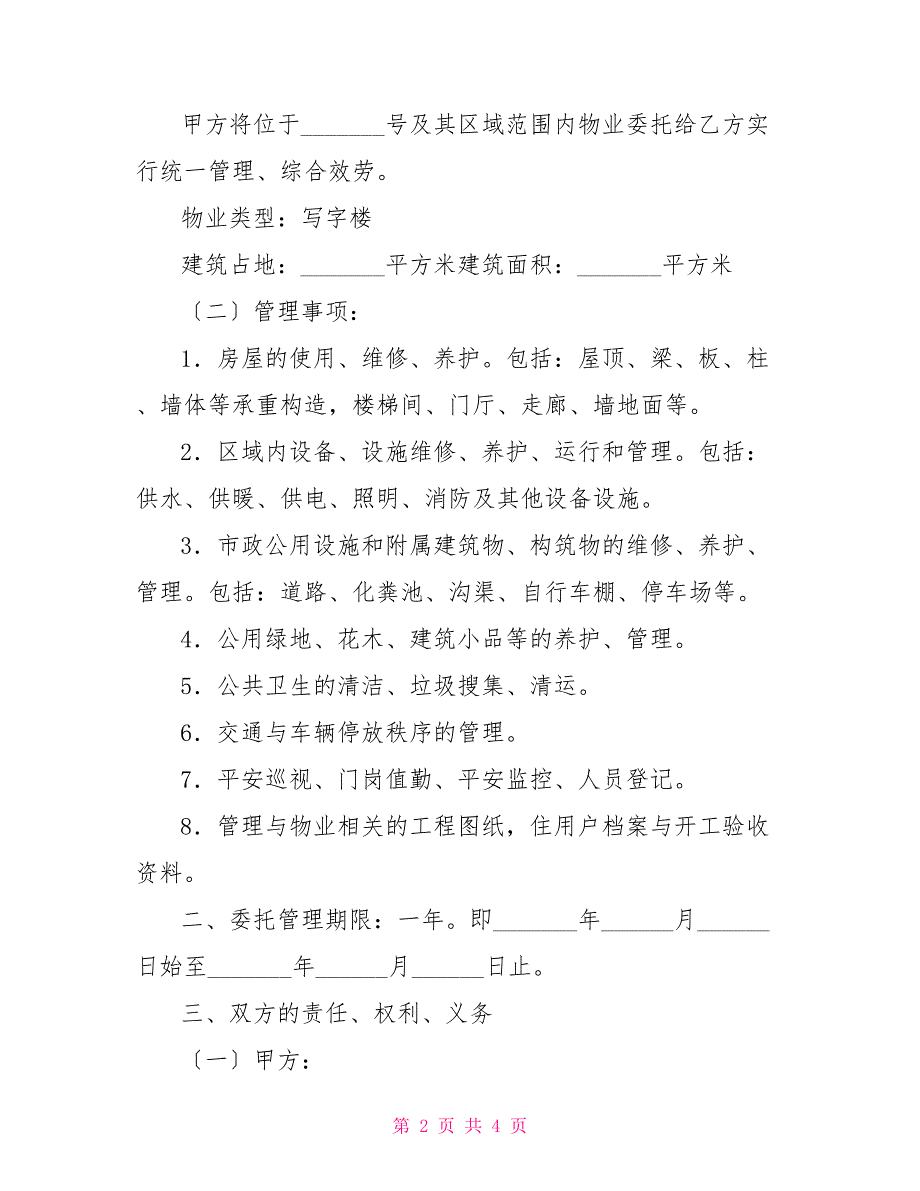 甲方将位于_______号及其区域范围内物业委托给乙方实
行统一管理、综合效劳。
物业类型：写字楼
建筑占地：_______平方米建筑面积：_______平方米
〔二〕管理事项：
1．房屋的使用、维修、养护。包括：屋顶、梁、板、柱
、墙体等承重构造，楼梯间、门厅、走廊、墙地面等。
2．区域内设备、设施维修、养护、运行和管理。包括：
供水、供暖、供电、照明、消防及其他设备设施。
3．市政公用设施和附属建筑物、构筑物的维修、养护、
管理。包括：道路、化粪池、沟渠、自行车棚、停车场等。
4．公用绿地、花木、建筑小品等的养护、管理。
5．公共卫生的清洁、垃圾搜集、清运。
6．交通与车辆停放秩序的管理。
7．平安巡视、门岗值勤、平安监控、人员登记。
8．管理与物业相关的工程图纸，住用户档案与开工验收
资料。
二、委托管理期限：一年。即_______年______月______
日始至_______年______月______日止。
三、双方的责任、权利、义务
〔一〕甲方：
第 2 页 共 4 页